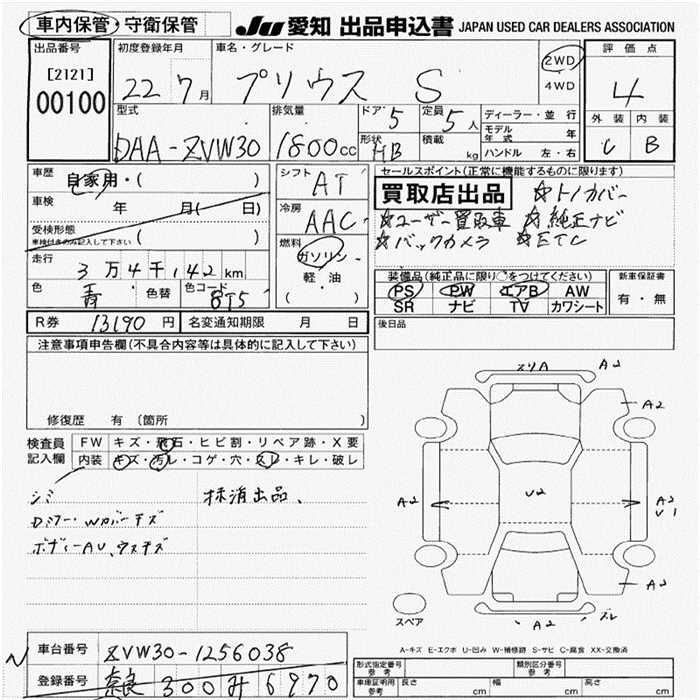 車内保管・守衛保管
JU 愛知 出品申込書 JAPAN USED CAR DEALERS ASSOCIATION
出品番号 初度登録年月 車名・グレード 2WD 4WD 評価点
[2121]
00100
22 7月 プリウス S 4
型式 排気量 ドア 5 定員 5人 ディーラー・並行
外装 内装
DAA-ZVW30 1800cc 形状 HB 積載 kg モデル年式 年
ハンドル 左・右
C B
車歴 自家用・( )
シフト AT
セールスポイント(正常に機能するものに限ります)
車検 年 月( 日)
冷房 AAC
買取店出品 ☆トノカバー
受検形態 ( )
車検付きのみ記入して下さい
☆ユーザー買取車 ☆純正ナビ
☆バックカメラ ☆ETC
燃料 ガソリン・軽・油
( )
走行 3万4千142km
色 青 色替 色コード 8T5
装備品(純正品に限り○をつけてください) 新車保証書
PS PW エアB AW 有・無
SR ナビ TV カワシート
R券 13190円 名変通知期限 月 日
後日品
注意事項申告欄(不具合内容等は具体的に記入して下さい)
修復歴 有 〔箇所 〕
検査員記入欄 FW キズ・飛石・ヒビ割・リペア跡・X要
内装 キズ・汚レ・コゲ・穴・スレ・キレ・破レ
シミ 抹消出品、
Dミラー・Wカバーキズ
ボディーAU、ウスキズ
スリA A2
A2
A2 U2 A2
U1
A2
A2 ズレ
W2
スペア
A-キズ E-エクボ U-凹み W-補修跡 S-サビ C-腐食 XX-交換済
車台番号 ZVW30-1256038
登録番号 奈良 300 み 6970
形式指定番号 参考 類別区分番号 参考
車庫証明用 参考 長さ cm 幅 cm 高さ cm